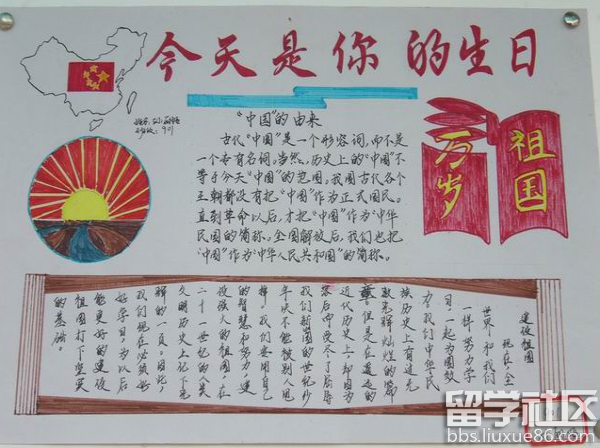 今天是你的生日
"中国"的由来
古代"中国"是一个形容词,而不是
一个专有名词。当然,历史上的"中国"不
等于今天"中国"的范围。我国古代各个
王朝都没有把"中国"作为正式国民。
直到革命以后,才把"中国"作为"中华
民国的简称。全国解放后,我们也把
"中国"作为"中华人民共和国"的简称。
祖国
万岁
建设祖国
现在,全
世界和我们
一样努力学
习,一起为国效
力。我们中华民
族历史上有过光
但是在遥远的
近代历史上,却因为
落后而受尽了屈辱
我们新国的世纪少
年决不能被别人思
我们要用自己
的智慧和努力,建
设强大的祖国,在
二十一世纪的人类
文明历史上记下光
辉的一页。因此,
我们现在必须好
好学习,为以后
能更好的建设
祖国打下坚实
的基础。
留学社区
bbs.liuxue86.com